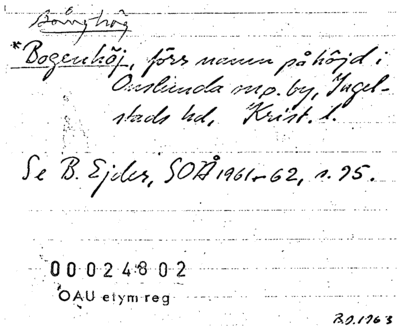 Bånghög
*Bogenhöj, förr namn på höjd i
Onslunda mp. by, Ingel-
stads hd, Krist. l.
Se B. Ejder, SOÅ 1961-62, s. 95.
00024802
OAU etym reg
B.J. 1963